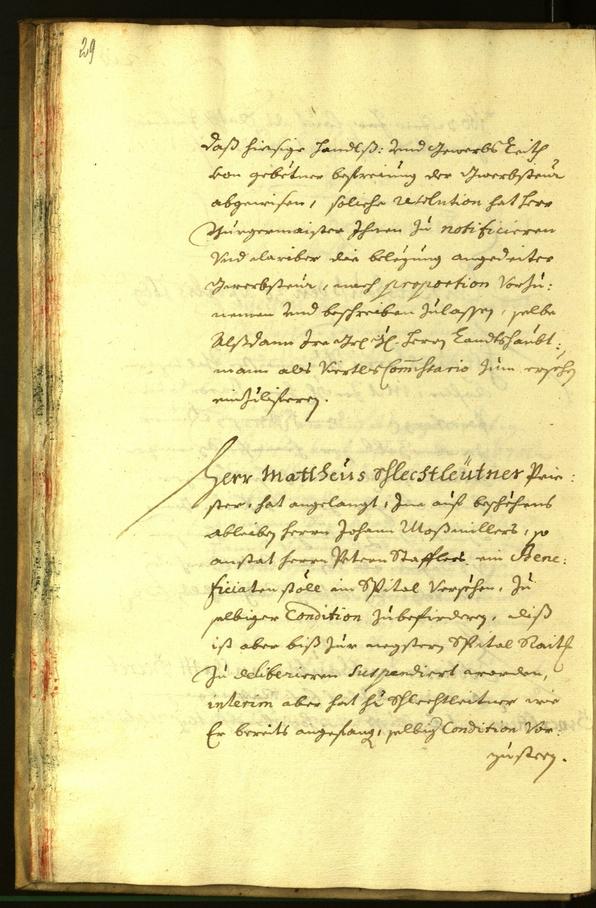 29
daß hiesige Handlß: Und Gewerbs Leith
von gebetner befreiung der Gewerbsteur
abgewisen, solliche resolution hat Herr
Burgermaister Ihnen zu notificieren
Und dariber die belegung angedeiter
Gewerbsteur, nach proportion vorzu:
nemen und beschreiben zulassen, selbe
Alßdann Herrn Landtshaubt:
mann als Viertls Commissario zum ersehen
einzulifern.
Herr Mattheus Schlechtleütner Prie:
ster, hat angelangt, Ime auf beschehens
ableiben Herrn Johann Moßmillers, so
anstat Herrn Petern Stafflers ein Bene:
ficiaten stöll im Spital versehen, zu
selbiger Condition zubefirdern, diß
ist aber biß zur negsten Spital Raitt
zu deliberieren suspendiert worden,
interim aber hat Schlechtleitner wie
Er bereits angefang, selbig Condition vor:
zusteen.